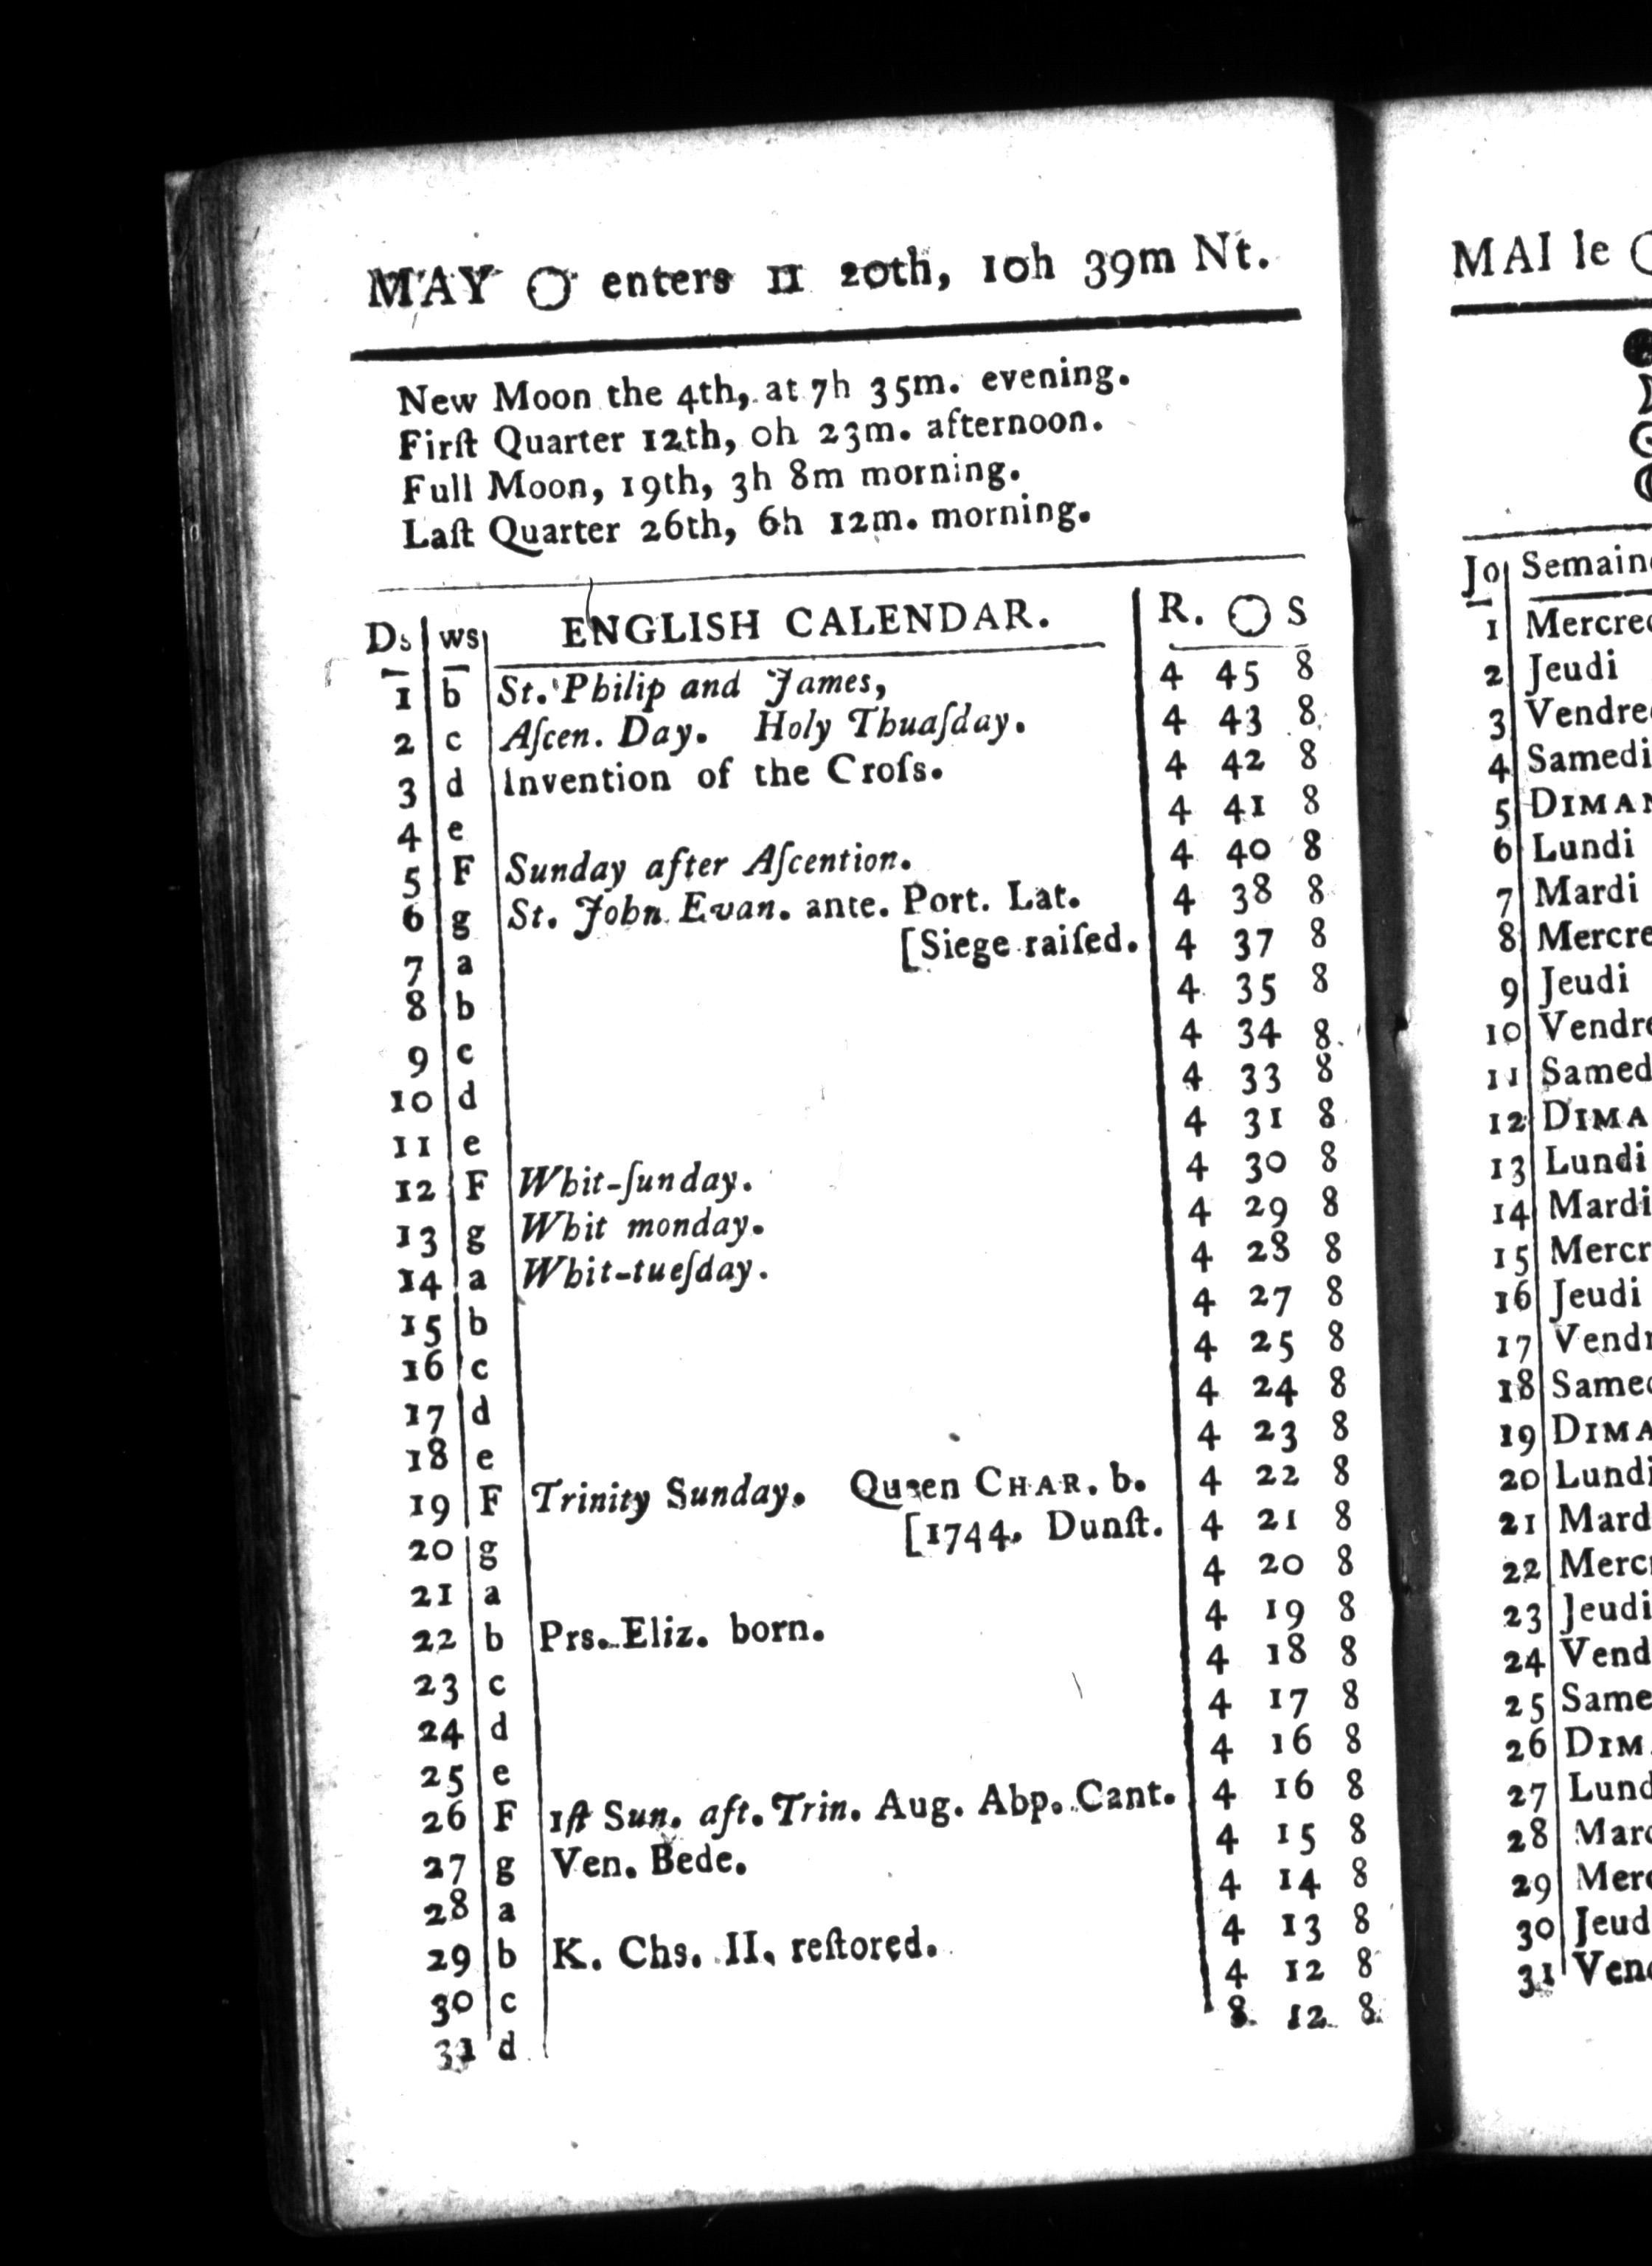 MAY ◯ enters ♊ 20th, 10h 39m Nt.
New Moon the 4th, at 7h 35m. evening.
Firſt Quarter 12th, 0h 23m. afternoon.
Full Moon, 19th, 3h 8m morning.
Laſt Quarter 26th, 6h 12m. morning.
Ds ws ENGLISH CALENDAR. R. ◯ S
1 b St. Philip and James, 4 45 8
2 c Aſcen. Day. Holy Thuaſday. 4 43 8
3 d Invention of the Croſs. 4 42 8
4 e 4 41 8
5 F Sunday after Aſcention. 4 40 8
6 g St. John Evan. ante. Port. Lat. 4 38 8
7 a [Siege raiſed. 4 37 8
8 b 4 35 8
9 c 4 34 8
10 d 4 33 8
11 e 4 31 8
12 F Whit-ſunday. 4 30 8
13 g Whit monday. 4 29 8
14 a Whit-tueſday. 4 28 8
15 b 4 27 8
16 c 4 25 8
17 d 4 24 8
18 e 4 23 8
19 F Trinity Sunday. Queen CHAR. b. 4 22 8
20 g [1744. Dunſt. 4 21 8
21 a 4 20 8
22 b Prs. Eliz. born. 4 19 8
23 c 4 18 8
24 d 4 17 8
25 e 4 16 8
26 F 1ſt Sun. aft. Trin. Aug. Abp. Cant. 4 16 8
27 g Ven. Bede. 4 15 8
28 a 4 14 8
29 b K. Chs. II. reſtored. 4 13 8
30 c 4 12 8
31 d 8 12 8
MAI le
Jo Semain
1 Mercre
2 Jeudi
3 Vendre
4 Samedi
5 DIMAN
6 Lundi
7 Mardi
8 Mercre
9 Jeudi
10 Vendre
11 Samed
12 DIMA
13 Lundi
14 Mardi
15 Mercr
16 Jeudi
17 Vendr
18 Same
19 DIMA
20 Lundi
21 Mard
22 Merc
23 Jeudi
24 Vend
25 Same
26 DIM
27 Lund
28 Mar
29 Mer
30 Jeud
31 Ven